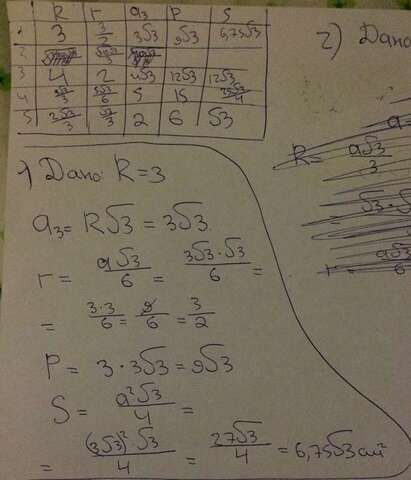 R r a₃ P S
1 3 3/2 3√3 9√3 6,75√3
2
3 4 2 4√3 12√3 12√3
4 5√3/3 5√3/6 5 15 25√3/4
5 2√3/3 √3/3 2 6 √3
1) Дано: R=3
a₃= R√3 = 3√3
r = a√3/6 = 3√3·√3/6 =
= 3·3/6 = 9/6 = 3/2
P = 3·3√3 = 9√3
S = a²√3/4 =
= (3√3)²·√3/4 = 27√3/4 = 6,75√3 см²
2) Дано
a=
R= a√3/3